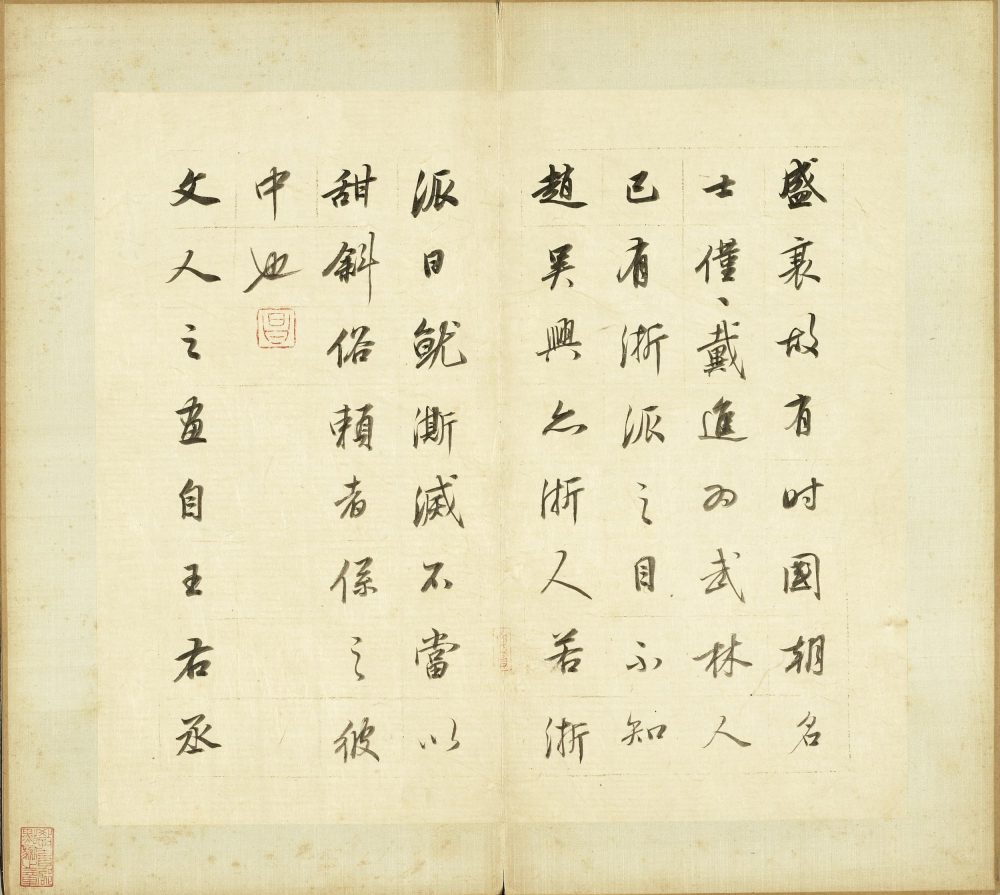 盛衰故有时國朝名
士僅〻戴進为武林人
已有浙派之目不知
趙吴興亦浙人若浙
派日就澌滅不當以
甜斜俗賴者係之彼
中也
文人之畫自王右丞